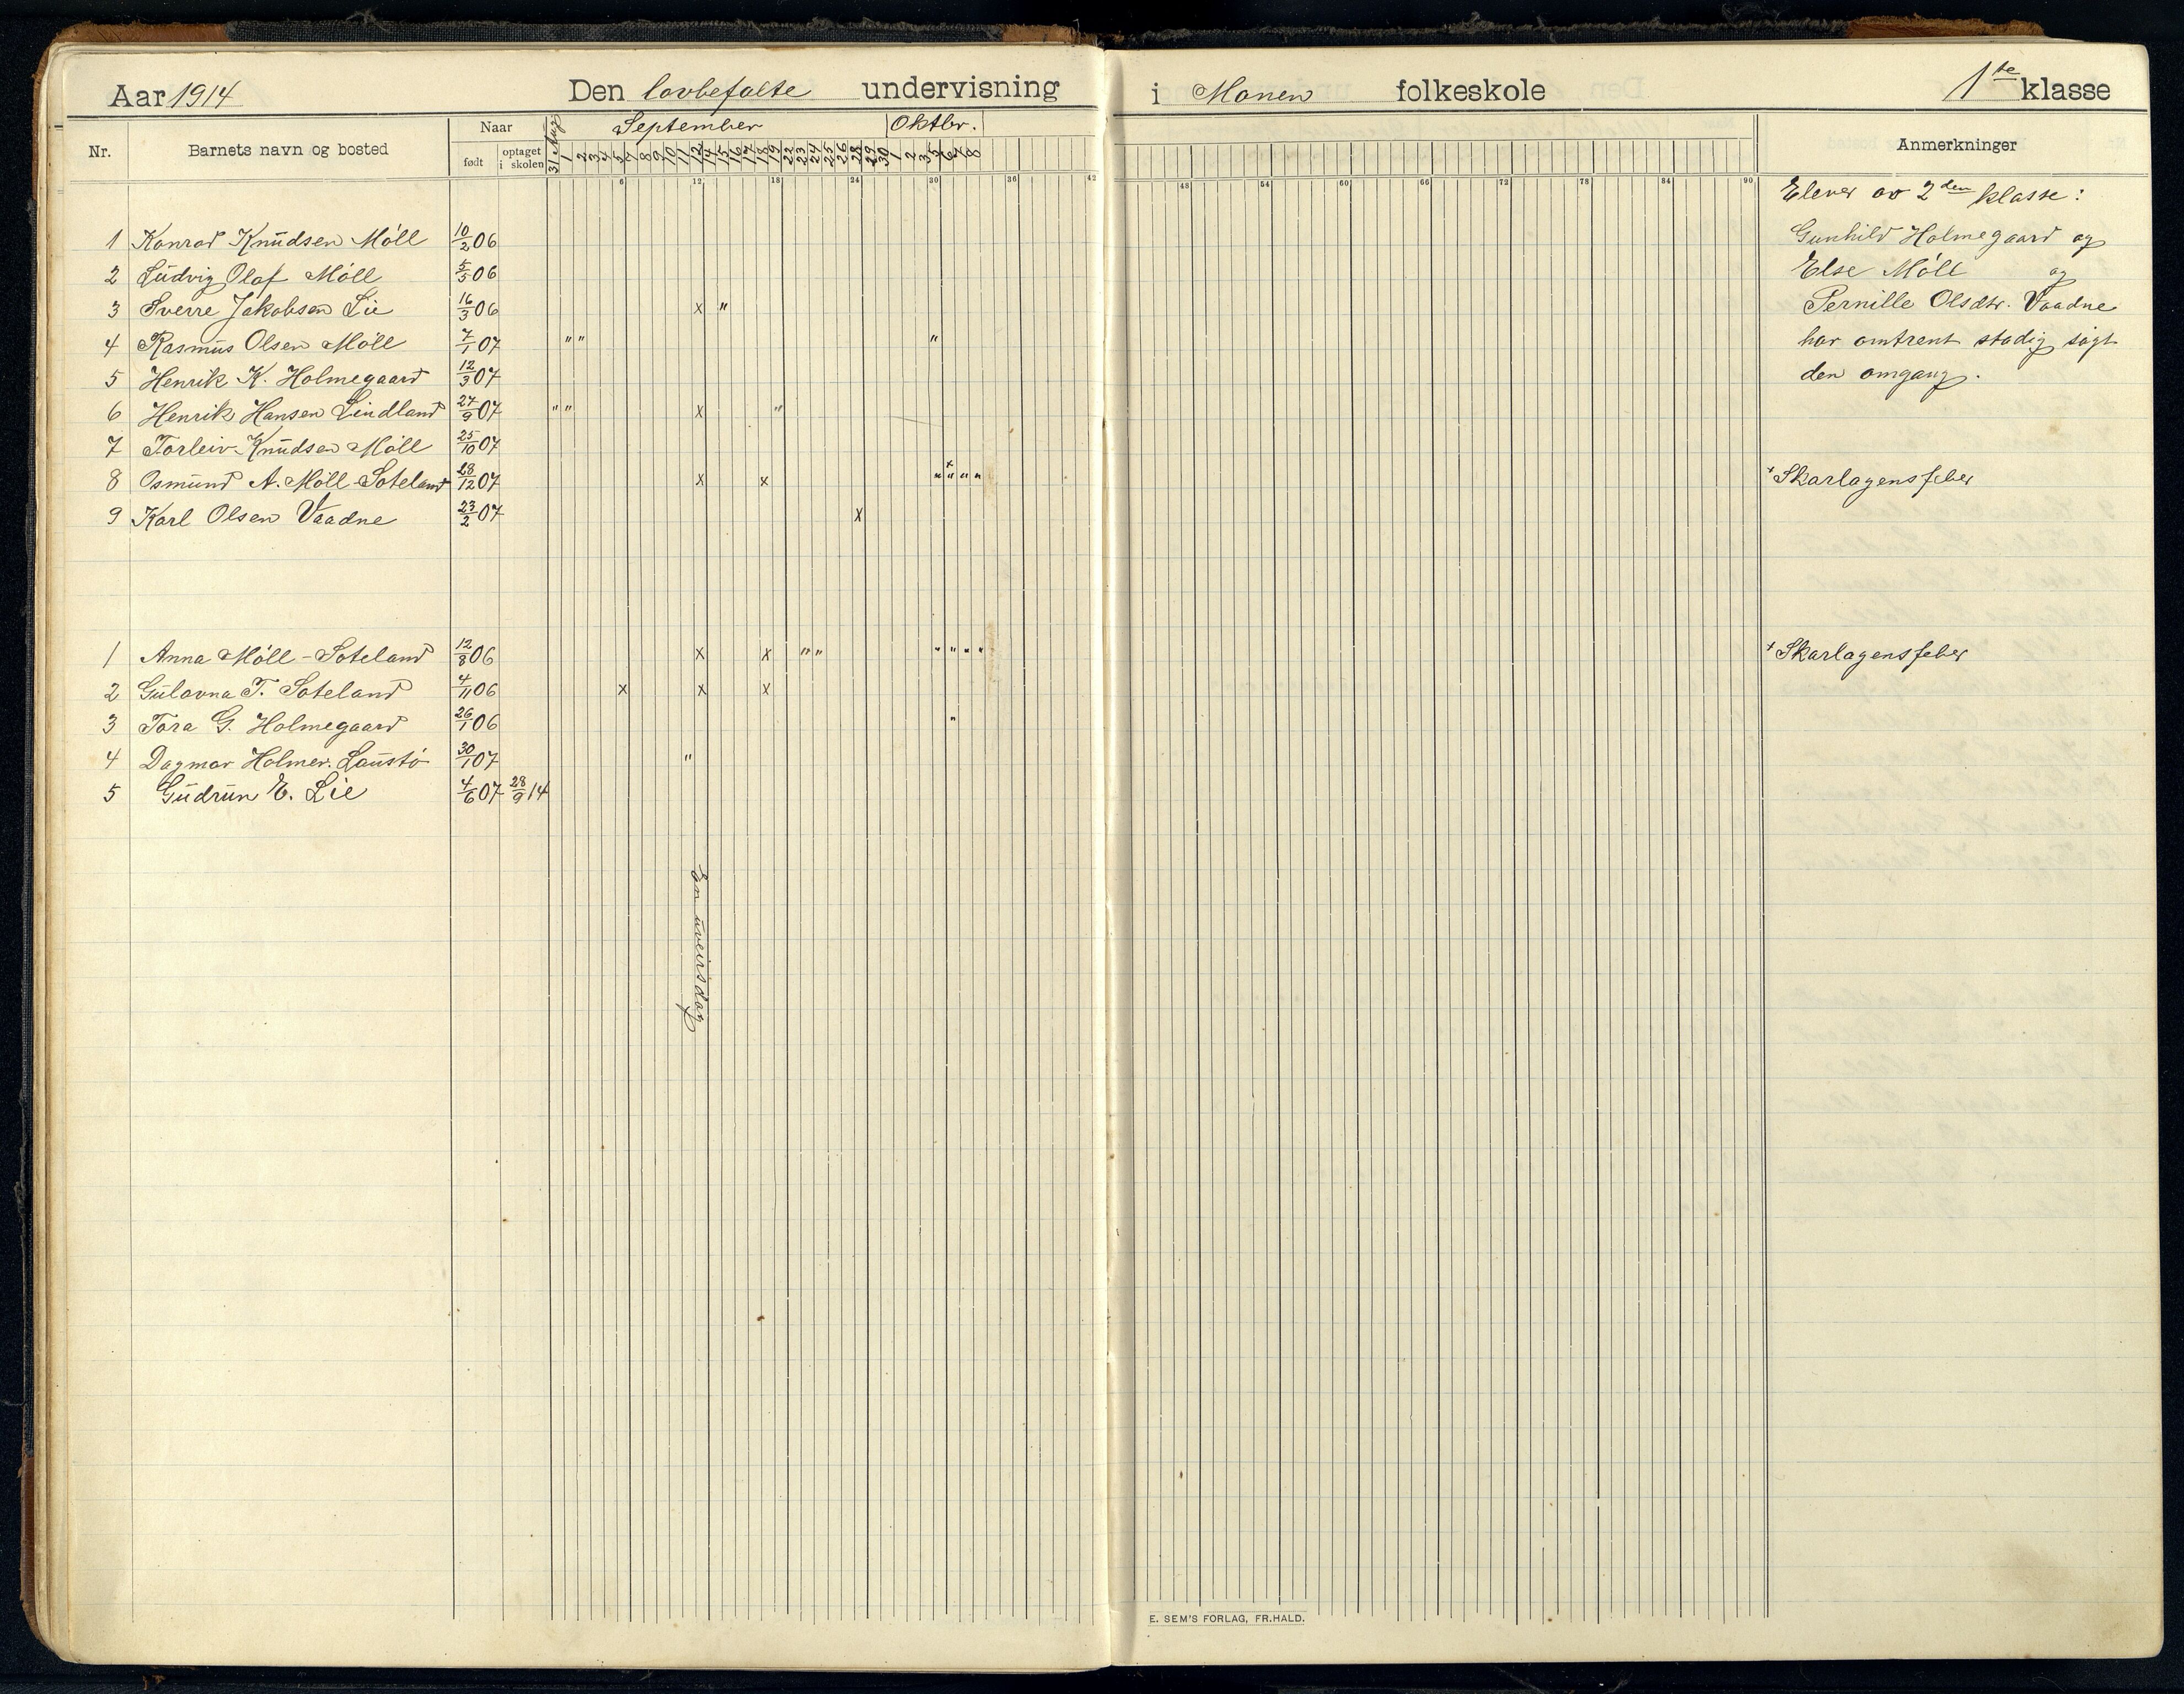 Aar 1914 Den lovbefalte undervisning i Monen folkeskole 1ste klasse
Nr. Barnets navn og bosted Naar født optaget i skolen 31 Aug September Oktbr. Anmerkninger
1 2 3 4 5 7 8 9 10 11 12 14 15 16 17 18 19 22 23 24 25 26 28 29 30 1 2 3 5 6 7 8
6 12 18 24 30 36 42 48 54 60 66 72 78 84 90
Elever av 2den klasse:
1 Konrad Knudsen Möll 10/2 06 Gunhild Holmegaard og
2 Ludvig Olaf Möll 5/5 06 Else Möll og
3 Sverre Jakobsen Lie 16/3 06 x " Pernille Olsdtr. Vaadne
4 Rasmus Olsen Möll 7/1 07 " " " har omtrent stadig sögt
5 Henrik K. Holmegaard 12/3 07 den omgang.
6 Henrik Hansen Lindland 27/9 07 " " x "
7 Torleiv Knudsen Möll 25/10 07
8 Osmund A. Möll-Soteland 28/12 07 x x " " " " + Skarlagensfeber
9 Karl Olsen Vaadne 23/2 07 x
1 Anna Möll-Soteland 12/8 06 x x " " " " " " + Skarlagensfeber
2 Gulovna T. Soteland 4/11 06 x x x
3 Tora G. Holmegaard 26/1 06 "
4 Dagmar Holmer. Laustö 30/1 07 "
5 Gudrun E. Lie 4/6 07 28/9 14
En uveirsdag
E. SEM'S FORLAG, FR.HALD.